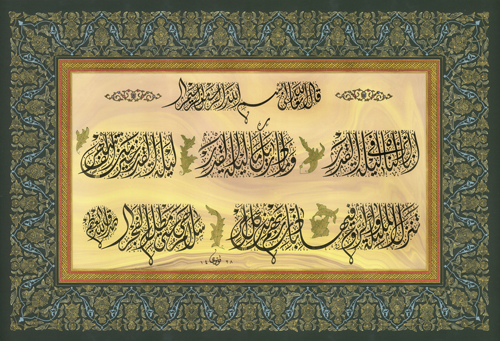 قال الله تعالى بسم الله الرحمن الرحيم
إنا أنزلناه في ليلة القدر وما أدراك ما ليلة القدر ليلة القدر خير من ألف شهر
تنزل الملائكة والروح فيها بإذن ربهم من كل أمر سلام هي حتى مطلع الفجر